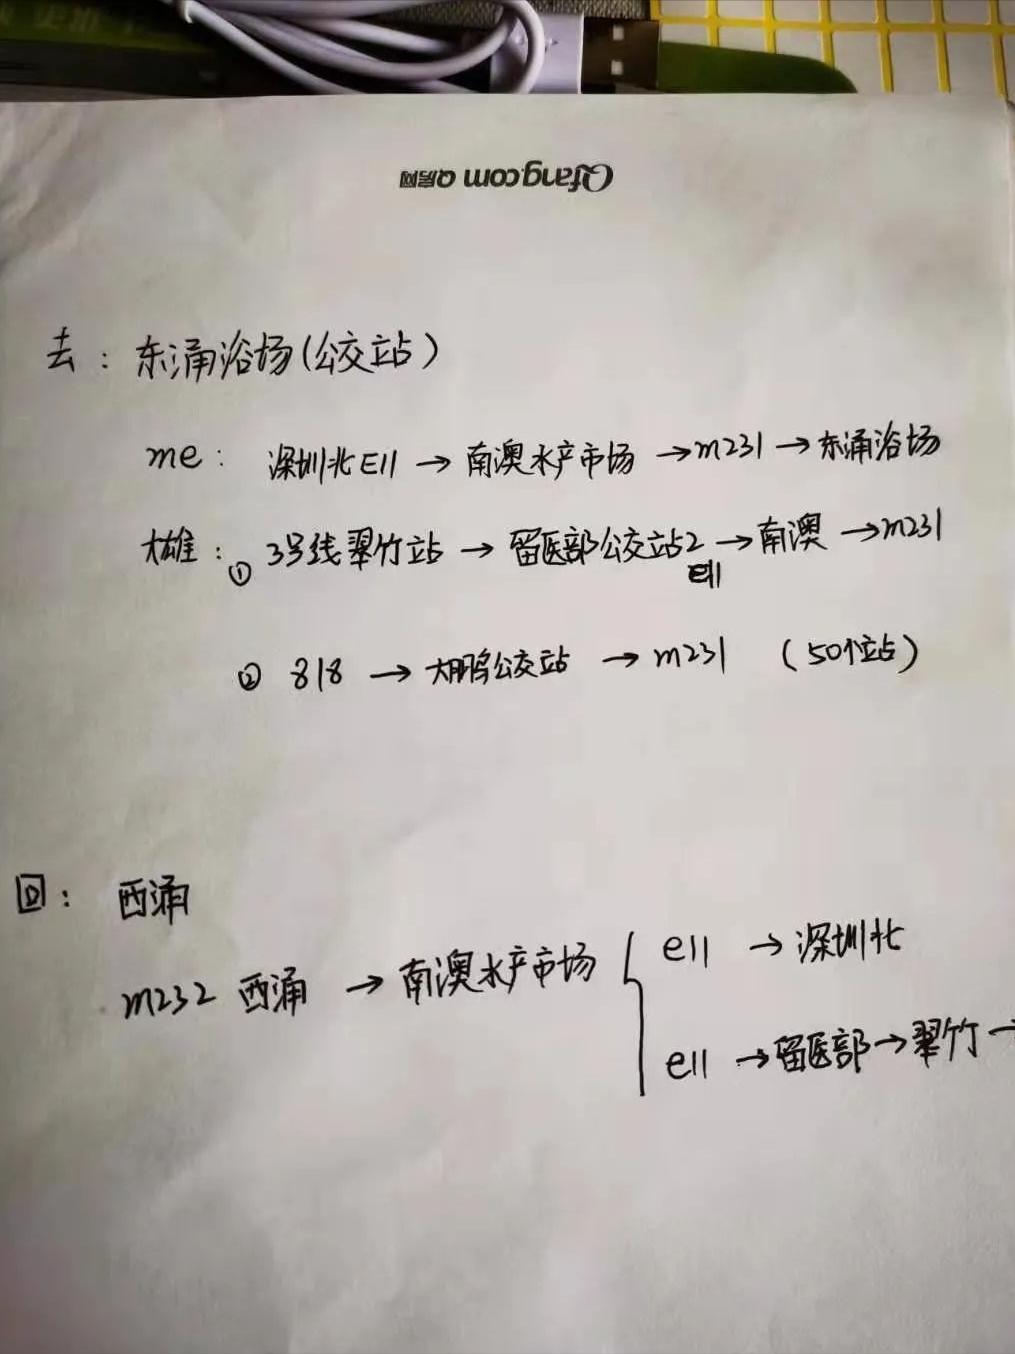 Qfang.com Q房网
去：东涌浴场(公交站)
me： 深圳北E11 → 南澳水产市场 → m231 → 东涌浴场
大雄：① 3号线翠竹站 → 留医部公交站2 → 南澳 → m231
e11
② 818 → 大鹏公交站 → m231 (50个站)
回： 西涌
m232 西涌 → 南澳水产市场 { e11 → 深圳北
e11 → 留医部 → 翠竹 →